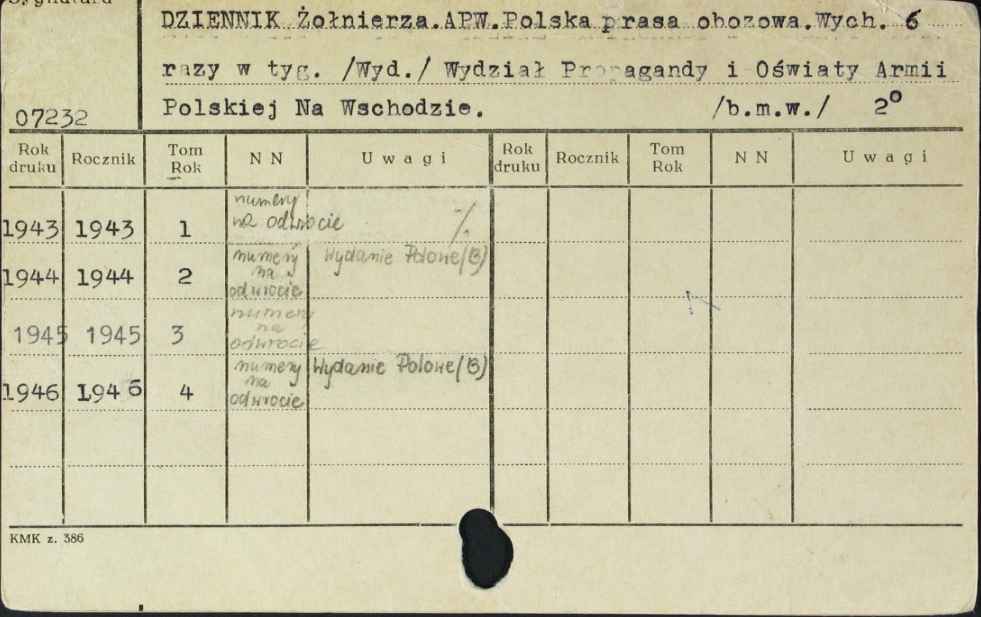 Sygnatura
DZIENNIK Żołnierza.APW.Polska prasa obozowa.Wych. 6
razy w tyg. /Wyd./ Wydział Propagandy i Oświaty Armii
07232 Polskiej Na Wschodzie. /b.m.w./ 2°
Rok druku Rocznik Tom Rok N N U w a g i Rok druku Rocznik Tom Rok N N U w a g i
1943 1943 1 numery na odwrocie ./.
1944 1944 2 numery na odwrocie Wydanie Polowe (B)
1945 1945 3 numery na odwrocie
1946 1946 4 numery na odwrocie Wydanie Polowe (B)
KMK z. 386